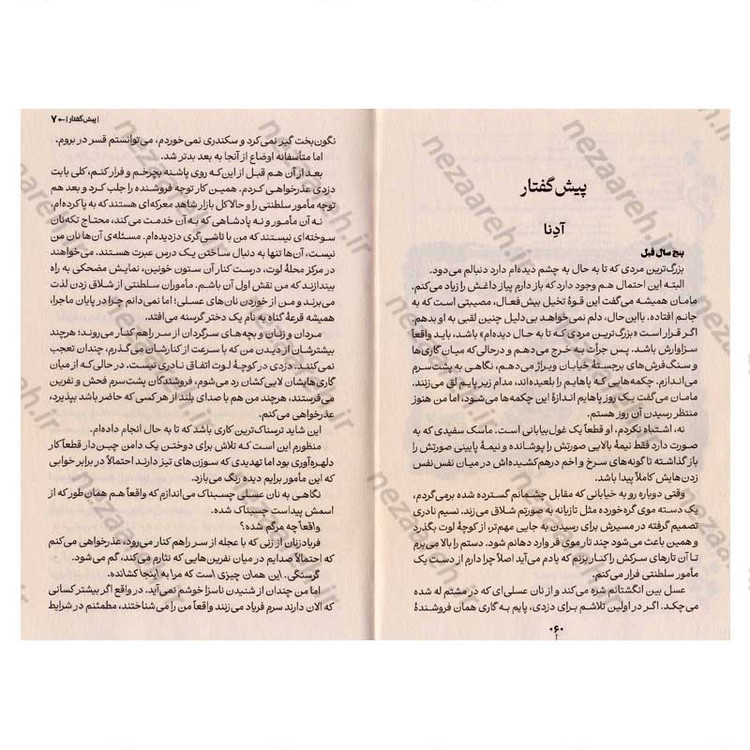 پیش‌گفتار
آدِنا
پنج سال قبل
بزرگ‌ترین مردی که تا به حال به چشم دیده‌ام دارد دنبالم می‌دود.
البته این احتمال هم وجود دارد که باز دارم پیاز داغش را زیاد می‌کنم.
مامان همیشه می‌گفت این قوهٔ تخیل بیش‌فعال، مصیبتی است که به
جانم افتاده. بااین‌حال، دلم نمی‌خواهد بی‌دلیل چنین لقبی به او بدهم.
اگر قرار است «بزرگ‌ترین مردی که تا به حال دیده‌ام» باشد، باید واقعاً
سزاوارش باشد. پس جرأت به خرج می‌دهم و درحالی‌که میان گاری‌ها
و سنگ‌فرش‌های برجستهٔ خیابان ویراژ می‌دهم، نگاهی به پشت‌سرم
می‌اندازم. چکمه‌هایی که پاهایم را بلعیده‌اند، مدام زیر پایم لق می‌زنند.
مامان می‌گفت یک روز پاهایم اندازهٔ این چکمه‌ها می‌شود، اما من هنوز
منتظر رسیدن آن روز هستم.
نه، اشتباه نکردم. او قطعاً یک غول‌بیابانی است. ماسک سفیدی که به
صورت دارد فقط نیمهٔ بالایی صورتش را پوشانده و نیمهٔ پایینی صورتش را
باز گذاشته تا گونه‌های سرخ و اخم درهم‌کشیده‌اش در میان نفس‌نفس
زدن‌هایش کاملاً پیدا باشد.
وقتی دوباره رو به خیابانی که مقابل چشمانم گسترده شده برمی‌گردم،
یک دسته موی گره‌خورده مثل تازیانه به صورتم شلاق می‌زند. نسیم نادری
تصمیم گرفته در مسیرش برای رسیدن به جایی مهم‌تر، از کوچهٔ لوت بگذرد
و همین باعث می‌شود چند تار موی فر وارد دهانم شود. دستم را بالا می‌برم
تا آن تارهای سرکش را کنار بزنم که یادم می‌آید اصلاً چرا دارم از دست یک
مأمور سلطنتی فرار می‌کنم.
عسل بین انگشتانم شره می‌کند و از نان عسلی‌ای که در مشتم له شده
می‌چکد. اگر در اولین تلاشم برای دزدی، پایم به گاری همان فروشندهٔ
۰۶۰
| پیش‌گفتار | ۰۷
نگون‌بخت گیر نمی‌کرد و سکندری نمی‌خوردم، می‌توانستم قسر در بروم.
اما متأسفانه اوضاع از آنجا به بعد بدتر شد.
بعد از آن هم قبل از این‌که روی پاشنه بچرخم و فرار کنم، کلی بابت
دزدی عذرخواهی کردم. همین کار توجه فروشنده را جلب کرد و بعد هم
توجه مأمور سلطنتی و حالا کل بازار شاهد معرکه‌ای هستند که به پا کرده‌ام.
نه آن مأمور و نه پادشاهی که به آن خدمت می‌کند، محتاج تکه‌نان
سوخته‌ای نیستند که من با ناشی‌گری دزدیده‌ام. مسئله‌ی آن‌ها نان من
نیست، آن‌ها تنها به دنبال ساختن یک درس عبرت هستند. می‌خواهند
در مرکز محلهٔ لوت، درست کنار آن ستون خونین، نمایش مضحکی به راه
بیندازند که من نقش اول آن باشم. مأموران سلطنتی از شلاق زدن لذت
می‌برند و من از خوردن نان‌های عسلی؛ اما نمی‌دانم چرا در پایان ماجرا،
همیشه قرعهٔ گناه به نام یک دختر گرسنه می‌افتد.
مردان و زنان و بچه‌های سرگردان از سر راهم کنار می‌روند؛ هرچند
بیشترشان از دیدن من که با سرعت از کنارشان می‌گذرم، چندان تعجب
نمی‌کنند. دزدی در کوچهٔ لوت اتفاق نادری نیست. در حالی که از میان
گاری‌هایشان لایی‌کشان رد می‌شوم، فروشندگان پشت‌سرم فحش و نفرین
می‌فرستند، هرچند من هم با صدای بلند از هر کسی که حاضر باشد بپذیرد،
عذرخواهی می‌کنم.
این شاید ترسناک‌ترین کاری باشد که تا به حال انجام داده‌ام.
منظورم این است که تلاش برای دوختن یک دامن چین‌دار قطعاً کار
دلهره‌آوری بود اما تهدیدی که سوزن‌های تیز دارند احتمالاً در برابر خوابی
که این مأمور برایم دیده رنگ می‌بازد.
نگاهی به نان عسلی چسبناک می‌اندازم که واقعاً هم همان‌طور که از
اسمش پیداست چسبناک شده.
واقعاً چه مرگم شده؟
فریادزنان از زنی که با عجله از سر راهم کنار می‌رود، عذرخواهی می‌کنم
که احتمالاً صدایم در میان نفرین‌هایی که نثارم می‌کند، گم می‌شود.
گرسنگی. این همان چیزی است که مرا به اینجا کشانده.
اما من چندان از شنیدن ناسزا خوشم نمی‌آید. در واقع اگر بیشتر کسانی
که الان دارند سرم فریاد می‌زنند واقعاً من را می‌شناختند، مطمئنم در شرایط
nezaareh.ir